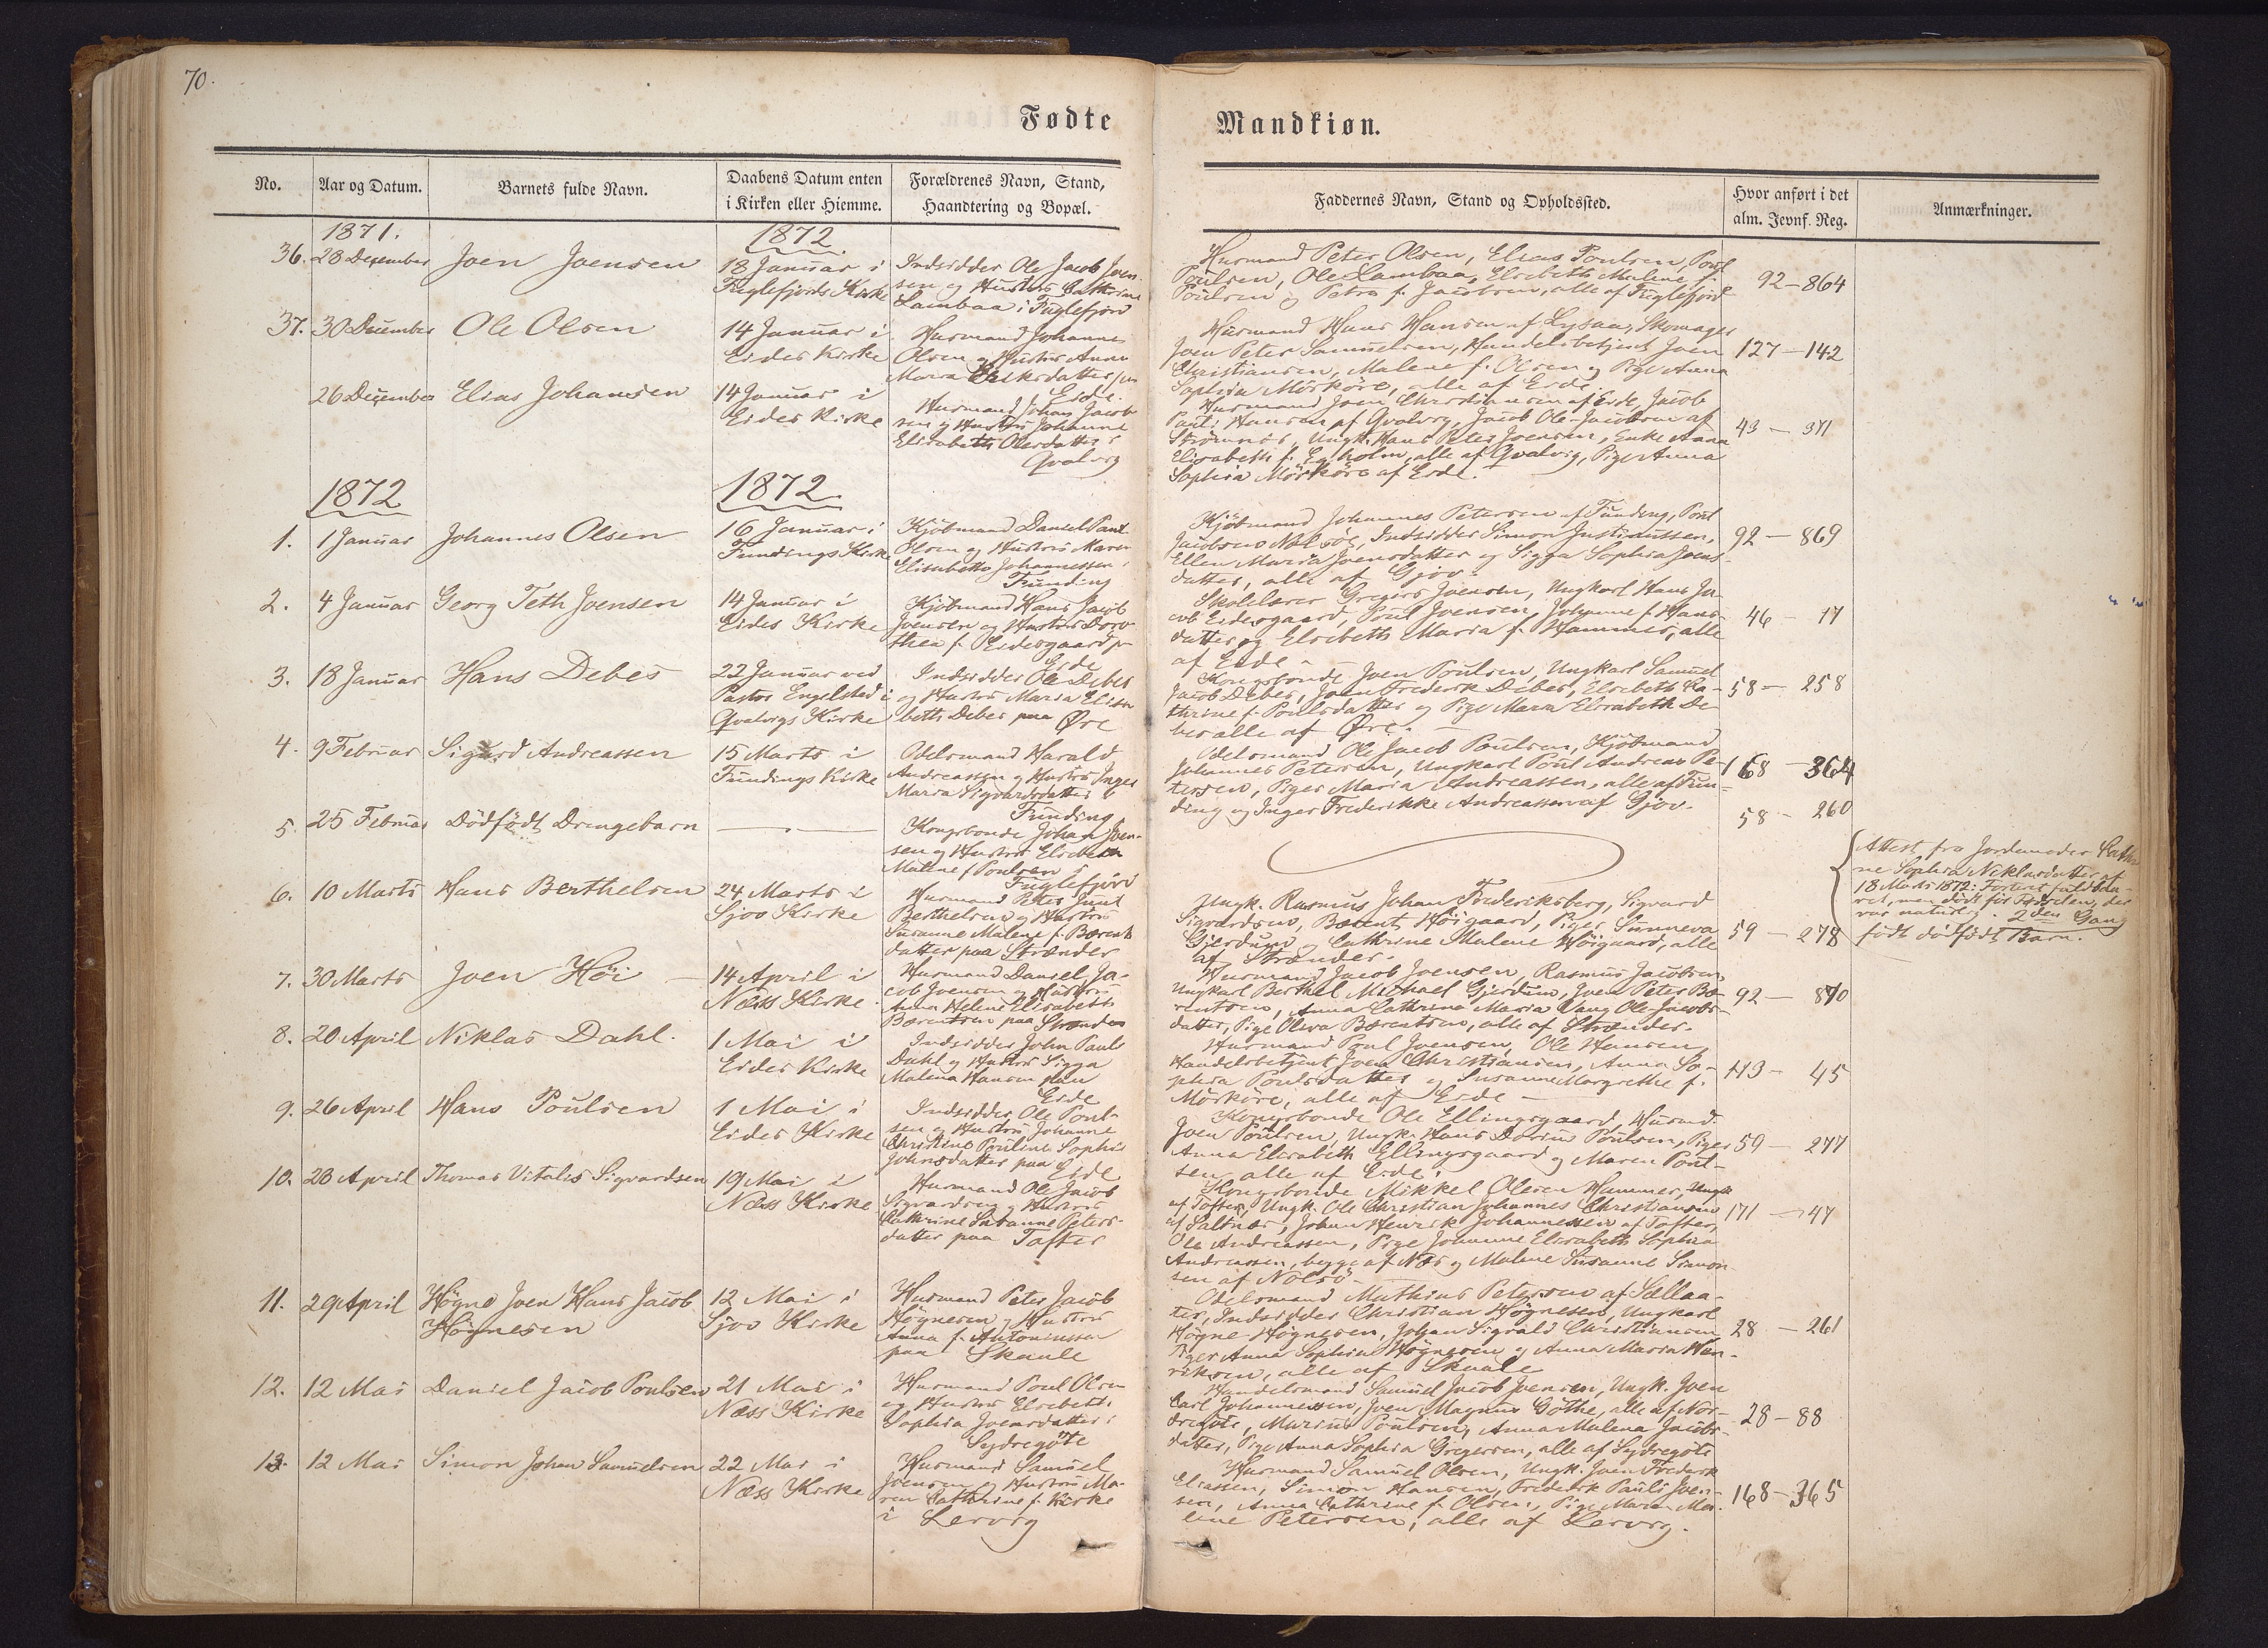 70.
Fødte
Mandkiøn.
No.
Aar og Datum.
Barnets fulde Navn.
Daabens Datum enten
i Kirken eller Hiemme.
Forældrenes Navn, Stand,
Haandtering og Bopæl.
Faddernes Navn, Stand og Opholdssted.
Hvor anført i det
alm. Jevnf. Reg.
Anmærkninger.
1871.
1872
36. 28 December
Joen Joensen
18 Januar i
Fuglefjords Kirke
Indsidder Ole Jacob Joen
sen og Hustru Cathrine
Lambaa i Fuglefjord
Husmand Peter Olsen, Elias Poulsen, Poul
Poulsen, Ole Lambaa, Elsebeth Malene f.
Poulsen og Petra f. Jacobsen, alle af Fuglefjord
92-864
37. 30 December
Ole Olsen
14 Januar i
Eides Kirke
Husmand Johannes
Olsen og Hustru Anna
Maria Eriksdatter paa
Eide.
Husmand Hans Hansen af Lysaa, Skomager
Joen Peter Samuelsen, Handelsbetjent Joen
Christiansen, Malene f. Olsen og Pige Anna
Sophia Mörköre, alle af Eide.
127-142
26 December
Elias Johansen
14 Januar i
Eides Kirke
Husmand Johan Jacob
sen og Hustru Johanne
Elisabeth Olesdatter i
Qvalvig
Husmand Joen Christiansen af Eide, Jacob
Pauli Hansen af Qvalvig, Jacob Ole Jacobsen af
Strömnæs, Ungk. Hans Peter Joensen, Enke Anna
Elisabeth f. Egholm, alle af Qvalvig, Pige Anna
Sophia Mörköre af Eide.
43 - 371
1872
1872
1. 1 Januar
Johannes Olsen
16 Januar i
Fundings Kirke
Kjöbmand Daniel Paul
Olsen og Hustru Maren
Elisabeth Johannessen i
Funding
Kjöbmand Johannes Petersen af Funding, Poul
Jacobsens Nolsöe, Indsidder Simon Justinussen,
Ellen Maria Joensdatter og Sigga Sophia Joens-
datter, alle af Gjov.
92 - 869
2. 4 Januar
Georg Teth Joensen
14 Januar i
Eides Kirke
Kjöbmand Hans Jacob
Joensen og Hustru Doro
thea f. Eidesgaard paa
Eide
Skolelærer Gregers Joensen, Ungkarl Hans Ja-
cob Eidesgaard, Poul Joensen, Johanne f. Hans-
datter og Elsebeth Maria f. Hammer, alle
af Eide -
46 - 17
3. 18 Januar
Hans Debes
22 Januar ved
Pastor Engelsted i
Qvalvigs Kirke
Indsidder Ole Debes
og Hustru Maria Elisa
beth Debes paa Øre
Kongsbonde Joen Poulsen, Ungkarl Samuel
Jacob Debes, Joen Frederik Debes, Elsebeth Ca-
thrine f. Poulsdatter og Pige Maria Elisabeth De
bes alle af Øre. -
58 - 258
4. 9 Februar
Sigurd Andreassen
15 Marts i
Fundings Kirke
Odelsmand Harald
Andreassen og Hustru Inger
Maria Sigvardsdatter i
Funding
Odelsmand Ole Jacob Poulsen, Kjöbmand
Johannes Petersen, Ungkarl Poul Andreas Pe-
tersen, Piger Maria Andreassen, alle af Fun-
ding og Inger Frederikke Andreassen af Gjov.
168 - 364
5. 25 Februar
Dödfödt Drengebarn
Kongsbonde Johan Joen-
sen og Hustru Elsebeth
Malene f. Poulsen i
Fuglefjord
58 - 260
Attest fra Jordemoder Cathri
ne Sophia Niklasdatter af
18 Marts 1872: Fosteret fuldbaa-
ret, men dödt för Födselen, der
var naturlig. 2den Gang
födt dödfödt Barn.
6. 10 Marts
Hans Berthelsen
24 Marts i
Sjov Kirke
Husmand Peter Juul
Berthelsen og Hustru
Susanne Malene f. Bærents
datter paa Strænder
Ungk. Rasmus Johan Frederiksberg, Sigvard
Sigvardsen, Bærent Höigaard, Piger Sunneva
Gjerdum og Cathrine Malene Höigaard, alle
af Strænder.
59 - 278
7. 30 Marts
Joen Höi
14 April i
Næss Kirke
Husmand Daniel Ja-
cob Joensen og Hustru
Anna Helene Elisabeth
Bærentsen paa Strænder
Husmand Jacob Joensen, Rasmus Jacobsen,
Ungkarl Berthel Michael Gjerdum, Joen Peter Bæ-
rentsen, Anna Cathrine Maria Vang Ole Jacobs-
datter, Pige Oliva Bærentsen, alle af Strænder.
92 - 870
8. 20 April
Niklas Dahl.
1 Mai i
Eides Kirke
Indsidder John Paul
Dahl og Hustru Sigga
Malena Hansen paa
Eide
Husmand Poul Joensen, Ole Hansen
Handelsbetjent Joen Christiansen, Anna So-
phia Poulsdatter og Susanne Margrethe f.
Mörköre, alle af Eide -
113 - 45
9. 26 April
Hans Poulsen
1 Mai i
Eides Kirke
Indsidder Ole Poul-
sen og Hustru Johanne
Christine Pouline Sophia
Johnsdatter paa Eide
Kongsbonde Ole Ellingsgaard, Husmd.
Joen Poulsen, Ungk. Hans Poulsen, Piger
Anna Elisabeth Ellingsgaard og Maren Poul-
sen, alle af Eide.
59 - 277
10. 28 April
Thomas Vitalis Sigvardsen
19 Mai i
Næss Kirke
Husmand Ole Jacob
Sigvardsen og Hustru
Cathrine Susanne Peters-
datter paa Tofter
Kongsbonde Mikkel Olesen Hammer, Ungk.
af Tofter, Ungk. Ole Christian Johannes Christiansen
af Saltnæs, Johan Henrik Johannessen af Tofter,
Ole Andreassen, Pige Johanne Elisabeth Sophia
Andreassen, begge af Næs og Malene Susanne Simon
sen af Nolsö -
171 - 47
11. 29 April
Högne Joen Hans Jacob
Högnesen
12 Mai i
Sjov Kirke
Husmand Peter Jacob
Högnesen og Hustru
Anna f. Antoniussen
paa Skaale
Odelsmand Mathias Petersen af Sellaa-
ter, Indsidder Christian Högnesen, Ungkarl
Högne Högnesen, Johan Sigvald Christiansen,
Piger Anna Sophia Högnesen og Anna Maria Hen-
riksen, alle af Skaale
28 - 261
12. 12 Mai
Daniel Jacob Poulsen
21 Mai i
Næss Kirke
Husmand Poul Olsen
og Hustru Elsebeth
Sophia Joensdatter i
Sydregöte
Handelsmand Samuel Jacob Joensen, Ungk. Joen
Carl Johannessen, Joen Magnus Göthe, alle af Nor-
dregöte, Marius Poulsen, Anna Malena Jacobs-
datter, Pige Anna Sophia Gregersen, alle af Sydregöte
28 - 88
13. 12 Mai
Simon Johan Samuelsen
22 Mai i
Næss Kirke
Husmand Samuel
Joensen og Hustru Ma-
ren Cathrine f. Kirke
i Lervig
Husmand Samuel Olsen, Ungk. Joen Frederik
Eliassen, Simon Hansen, Frederik Pauli Joen-
sen, Anna Cathrine f. Olsen, Pige Maren Ma-
lene Petersen, alle af Lervig.
168-365